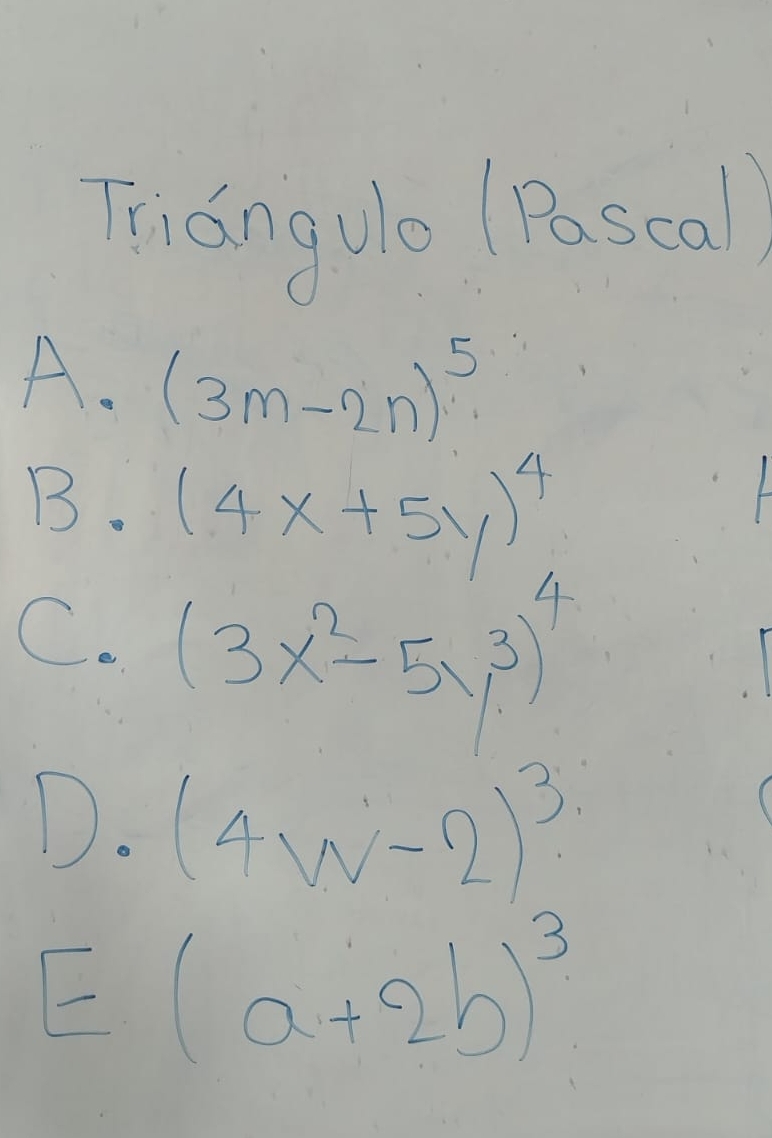 Triángulo (Pascal)
A. (3m-2n)⁵
B. (4x+5y)⁴
C. (3x²-5y³)⁴
D. (4w-2)³
E (a+2b)³